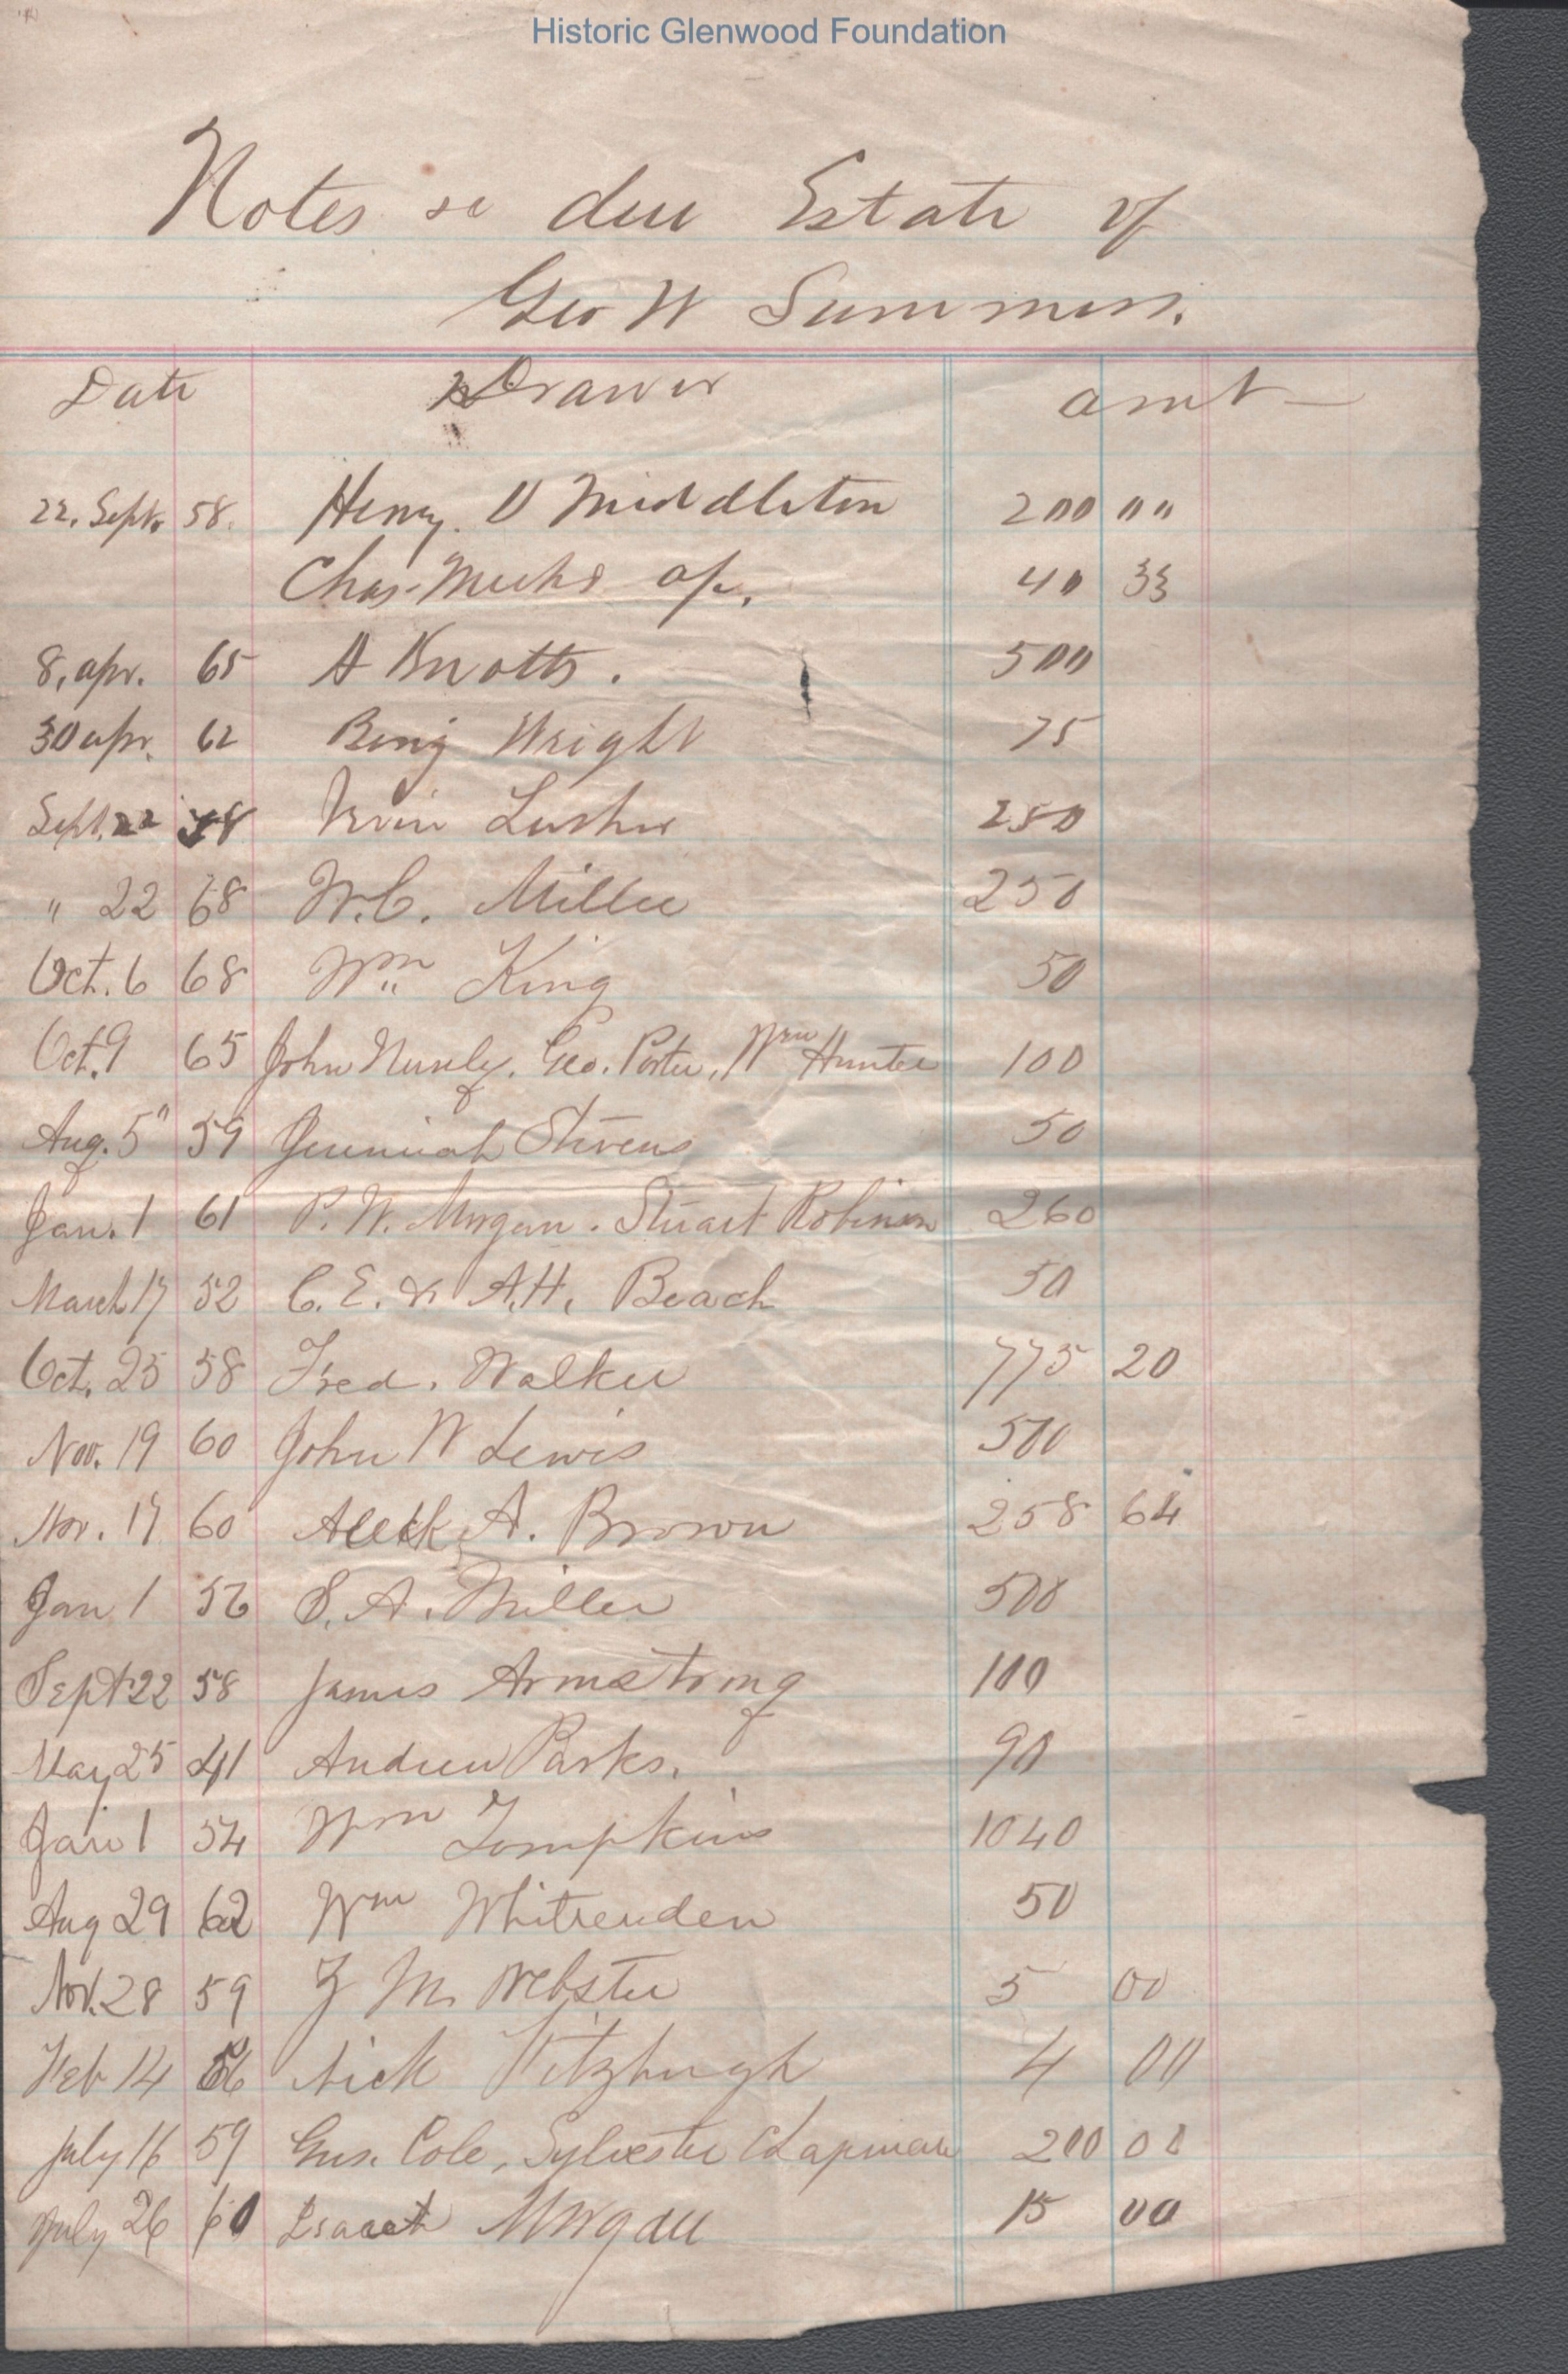 Historic Glenwood Foundation
Notes &c due Estate of
Geo W Summers.
Date Drawer amt
22. Sept. 58. Henry. D Middleton 200 00
Chas. Meeks 40 33
8, apr. 65 A Knotts. 500
30 apr. 62 Benj Wright 75
Sept. 22 58 Irvin Lusher 250
" 22 68 W.C. Miller 250
Oct. 6 68 Wm King 50
Oct. 9 65 John Geo. Porter, Wm Hunter 100
Aug. 5" 59 Jeremiah Stevens 50
Jan. 1 61 P. W. Morgan. Stuart Robinson 260
March 17 52 C. E. & A.H. Beach 50
Oct. 25 58 Fred. Walker 775 20
Nov. 19 60 John W Lewis 500
Nov. 17 60 Aleck A. Brown 258 64
Jan 1 56 S. A. Miller 500
Sept 22 58 James Armstrong 100
May 25 41 Andrew Parks. 90
Jan 1 54 Wm Tompkins 1040
Aug 29 62 Wm Whitteuden 50
Nov. 28 59 M. Webster 5 00
Feb 14 56 Nick Fitzhugh 4 00
July 16 59 Gus. Cole, Sylvester Chapman 200 00
July 26 60 Isaac Morgan 15 00